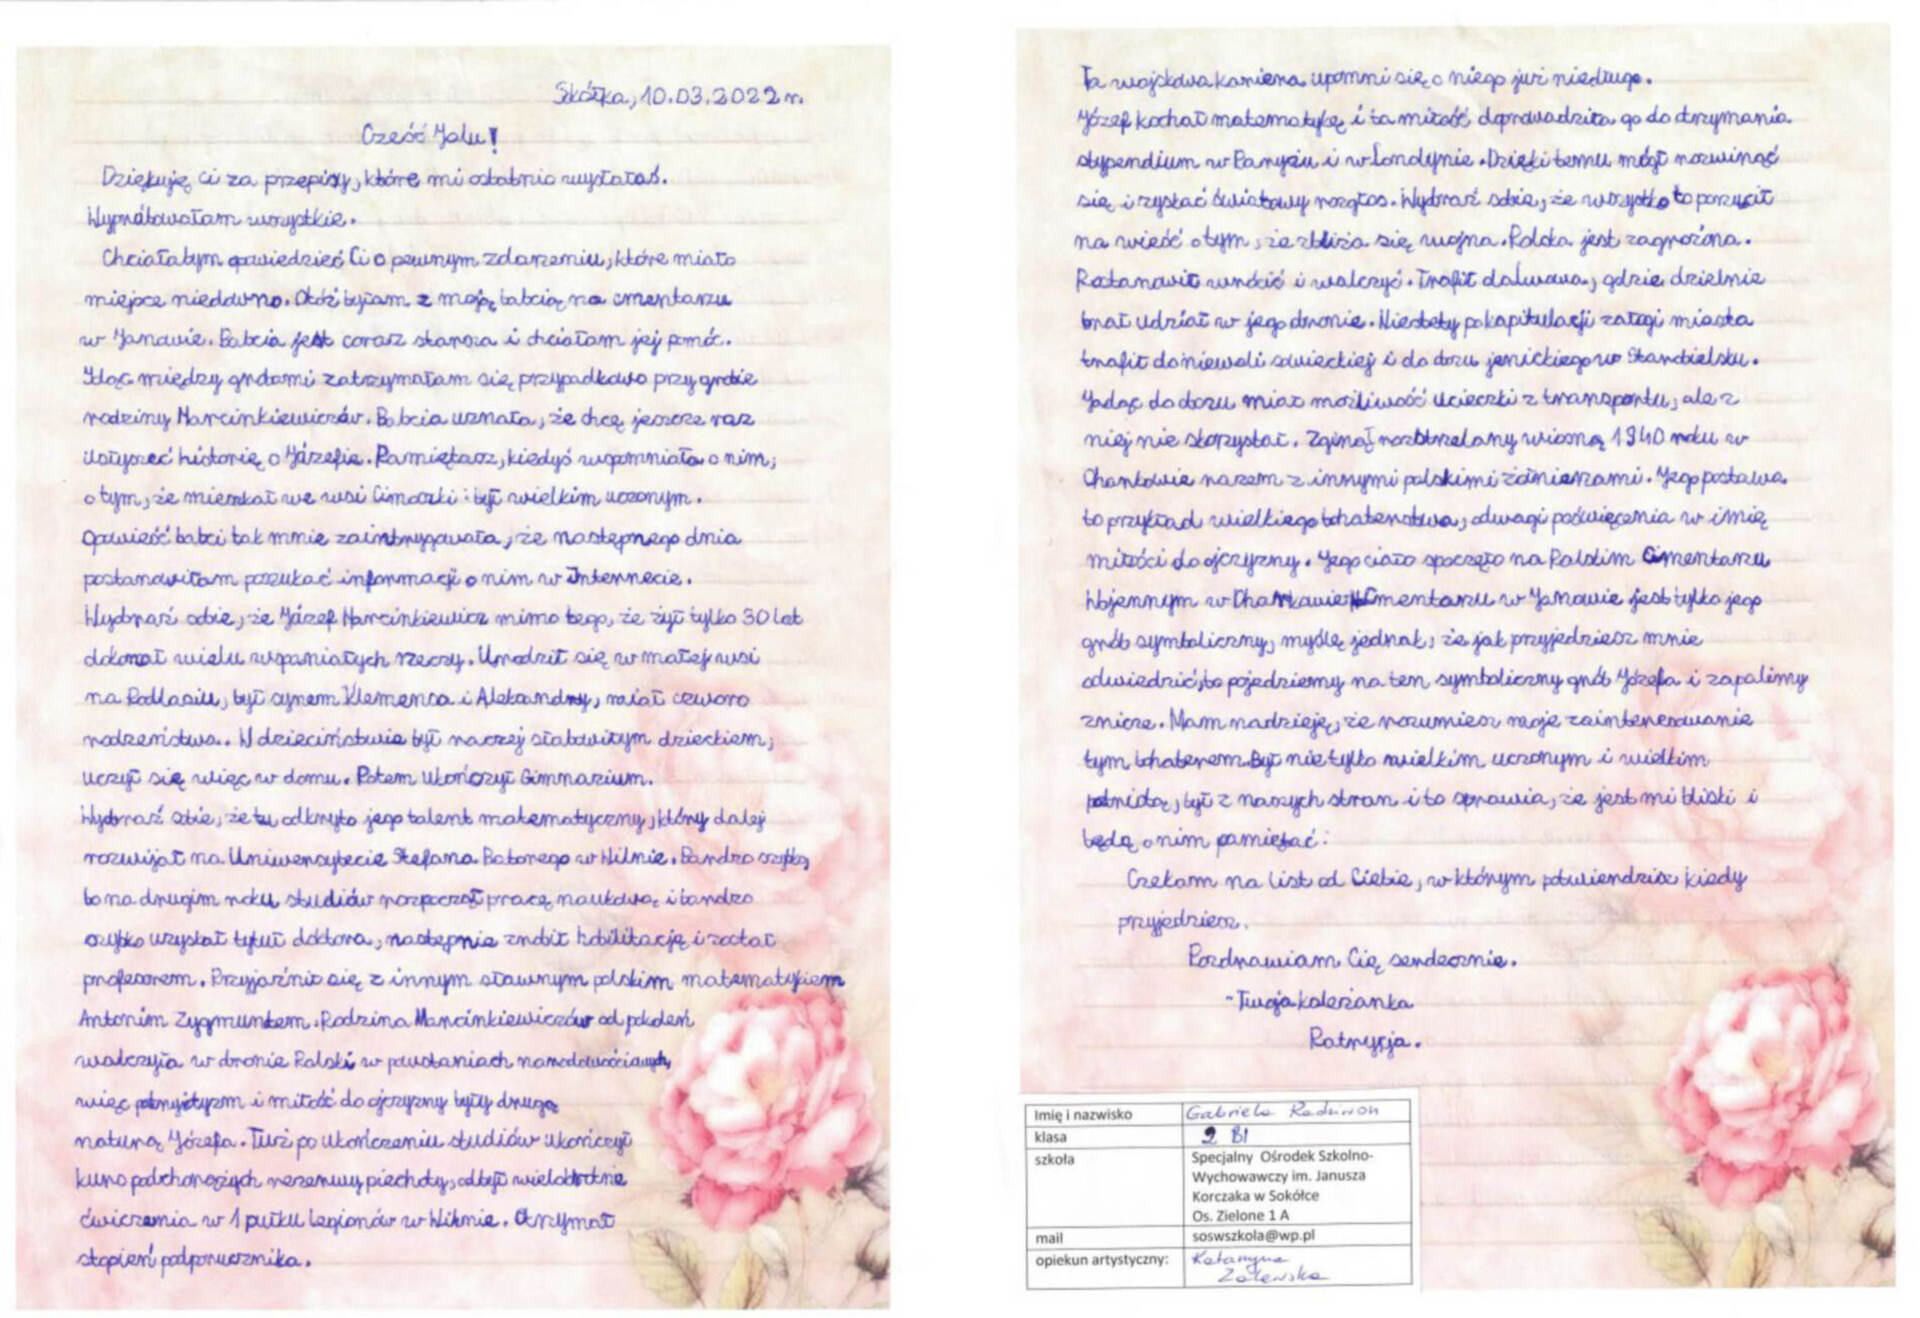 Skółka, 10.03.2022 r.
Cześć Jolu!
Dziękuję Ci za przepisy, które mi ostatnio wysłałaś.
Wypróbowałam wszystkie.
Chciałabym opowiedzieć Ci o pewnym zdarzeniu, które miało
miejsce niedawno. Otóż byłam z moją babcią na cmentarzu
w Janowie. Babcia jest coraz starsza i chciałam jej pomóc.
Idąc między grobami zatrzymałam się przypadkowo przy grobie
rodziny Marcinkiewiczów. Babcia uznała, że chcę jeszcze raz
usłyszeć historię o Józefie. Pamiętasz, kiedyś wspomniała o nim,
o tym, że mieszkał we wsi Cimoszki i był wielkim uczonym.
Opowieść babci tak mnie zaintrygowała, że następnego dnia
postanowiłam poszukać informacji o nim w Internecie.
Wyobraź sobie, że Józef Marcinkiewicz mimo tego, że żył tylko 30 lat
dokonał wielu wspaniałych rzeczy. Urodził się w małej wsi
na Podlasiu, był synem Klemensa i Aleksandry, miał czworo
rodzeństwa. W dzieciństwie był raczej słabowitym dzieckiem,
uczył się więc w domu. Potem ukończył Gimnazium.
Wyobraź sobie, że tu odkryto jego talent matematyczny, który dalej
rozwijał na Uniwersytecie Stefana Batorego w Wilnie. Bardzo szybko,
bo na drugim roku studiów rozpoczął pracę naukową i bardzo
szybko uzyskał tytuł doktora, następnie zrobił habilitację i został
profesorem. Przyjaźnił się z innym sławnym polskim matematykiem
Antonim Zygmuntem. Rodzina Marcinkiewiczów od pokoleń
walczyła w obronie Polski w powstaniach narodowościowych,
więc patryjotyzm i miłość do ojczyzny były drugą
naturą Józefa. Tuż po ukończeniu studiów ukończył
kurs podchorążych rezerwy piechoty, odbył wielokrotnie
ćwiczenia w 1 pułku legionów w Wilnie. Otrzymał
stopień podporucznika.
Ta wojskowa kariera upomni się o niego już niedługo.
Józef kochał matematykę i ta miłość doprowadziła go do otrzymania
stypendium w Paryżu i w Londynie. Dzięki temu mógł rozwinąć
się i zyskać światowy rozgłos. Wyobraź sobie, że wszystko to porzucił
na wieść o tym, że zbliża się wojna. Polska jest zagrożona.
Postanowił wrócić i walczyć. Trafił do Lwowa, gdzie dzielnie
brał udział w jego obronie. Niestety po kapitulacji załogi miasta
trafił do niewoli sowieckiej i do obozu jenieckiego w Starobielsku.
Jadąc do obozu miał możliwość ucieczki z transportu, ale z
niej nie skorzystał. Zginął rozstrzelany wiosną 1940 roku w
Charkowie razem z innymi polskimi żołnierzami. Jego postawa
to przykład wielkiego bohaterstwa, odwagi poświęcenia w imię
miłości do ojczyzny. Jego ciało spoczęło na Polskim Cmentarzu
Wojennym w Charkowie. Cmentarzu w Janowie jest tylko jego
grób symboliczny, myślę jednak, że jak przyjedziesz mnie
odwiedzić, to pojedziemy na ten symboliczny grób Józefa i zapalimy
znicze. Mam nadzieję, że rozumiesz moje zainteresowanie
tym bohaterem. Był nie tylko wielkim uczonym i wielkim
patriotą, był z naszych stron i to sprawia, że jest mi bliski i
będę o nim pamiętać.
Czekam na list od Ciebie, w którym potwierdzisz kiedy
przyjedziesz.
Pozdrawiam Cię serdecznie.
-Twoja koleżanka
Patrycja.
Imię i nazwisko Gabriela Radziwon
klasa 2 BI
szkoła Specjalny Ośrodek Szkolno-
Wychowawczy im. Janusza
Korczaka w Sokółce
Os. Zielone 1 A
mail soswszkola@wp.pl
opiekun artystyczny: Katarzyna
Zalewska